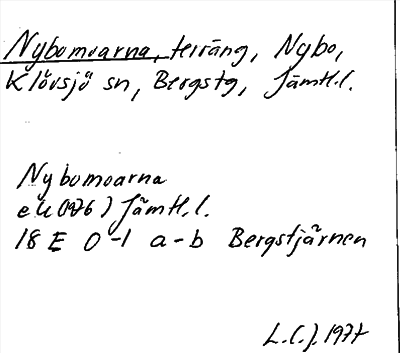 Nybomoarna, terräng, Nybo,
Klövsjö sn, Bergstg, Jämtl.l.
Nybomoarna
ek (1976) Jämtl.l.
18 E 0-1 a-b Bergstjärnen
L.C.J. 1977